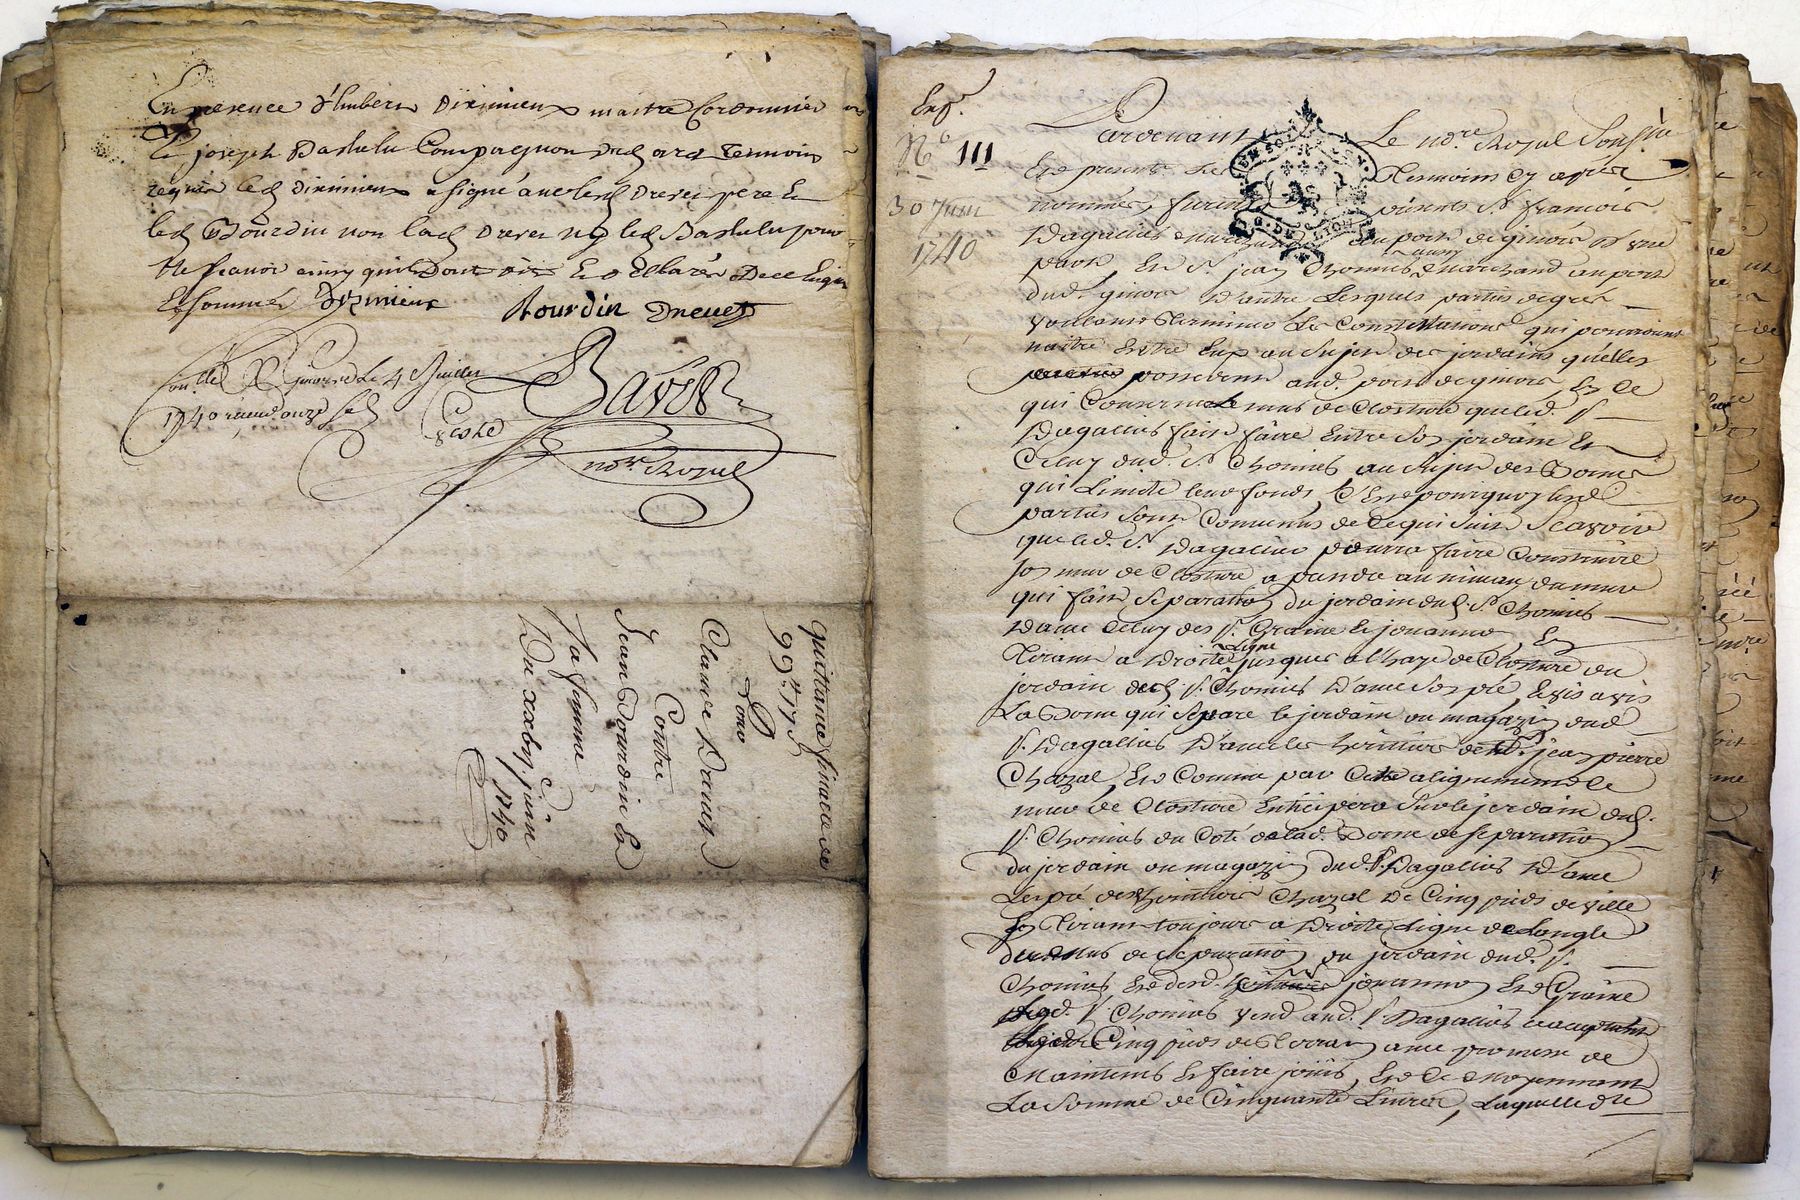 En presence d'Imbert Diximieux maitre Cordonnier
Et joseph Compagnon temoins
requis led Diximieux a signé avec lesd Drevet pere Et
led Bourdin non lad Drevet ny led pour
ne scavoir ainsy quils ont dit Et declaré De ce Enquis
Et sommés Diximieux Bourdin Drevet
Con.llé a Givors Le 4 Juillet
1740 reçeu douze sols
Bavet
no.re Royal
quittance finalle de
99.tt 17 s
Pour
Claude Drevet
Contre
Jean Bourdin Et
Sa femme
Du xxvj.e juin
1740
Exp.r
N.o 111
30 Juin
1740
Pardevant Le no.re Royal Sous.né
Et presents Les temoins Cy apres
nommés, furent présents s.r françois
Dagallier marchand au port de givors d'une
part, Et s.r jean Thomas marchand au port
dud. givors d'autre Lesquels parties de gré
voulant terminer Les Contestations qui pourroient
naitre Entre Eux au Sujet des jardains qu'elles
possedent aud. port de givors, Et de
qui Concerne Le mur de Closture que led. s.r
Dagallier fait faire Entre Son jardain Et
Celuy dud. s.r Thomas au Sujet des Bornes
qui Limite leur fonds, C'Est pourquoy lesd.
parties Sont Convenues de Ce qui Suit Scavoir
que led. s.r Dagallier pourra faire Construire
Son mur de Closture a prendre au niveau du mur
qui fait Separation du jardain dud. s.r Thomas
D'avec Celuy des s.rs Graine Et jouannon, En
Tirant a Droite Ligne jusques a l'haye de Closture du
jardain dud. s.r Thomas D'avec Son pré, Et vis a vis
La Borne qui Separe le jardain ou magazin dud.
s.r Dagallier D'avec les heritiers de jean pierre
Chazal, Et Comme par Cette alignement le
mur de Closture Enticipera Sur le jardain dud.
s.r Thomas du Coté de lad. Borne de Separation
du jardain ou magazin dud. s.r Dagallier D'avec
Le pré des heritiers Chazal De Cinq pieds de ville
En Tirant toujours a Droite Ligne de Langle
du mur de Separation du jardain dud. s.r
Thomas Et desd. jouannon Et Graine
Led. s.r Thomas vend aud. s.r Dagallier acceptant
Cinq pieds de Terrain avec promesse de
Maintenir Et faire jouir, Et Ce Moyennant
La Somme de Cinquante Livres, Laquelle d.te